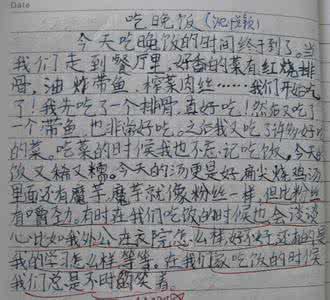 Date
吃晚饭
今天吃晚饭的时间终于到了。当
我们走到餐厅里,好香的菜有红烧排
骨,油炸带鱼,榨菜肉丝……我们开始吃
了!我先吃了一个排骨,真好吃!然后又吃了
一个带鱼,也非常好吃。之后我又吃了许多好吃
的菜。吃菜的时候我也不忘记吃饭,今天的
饭又稀又糯。今天的汤更是好,扁尖炖鸡汤
里面还有魔芋,魔芋就像粉丝一样,但比粉丝
有嚼劲。有时在我们吃饭的时候也会谈谈
心,比如我外公在医院怎么样,好不好,还有的是
我的学习怎么样等等,在我们吃饭的时候
我们总是不时的笑着。